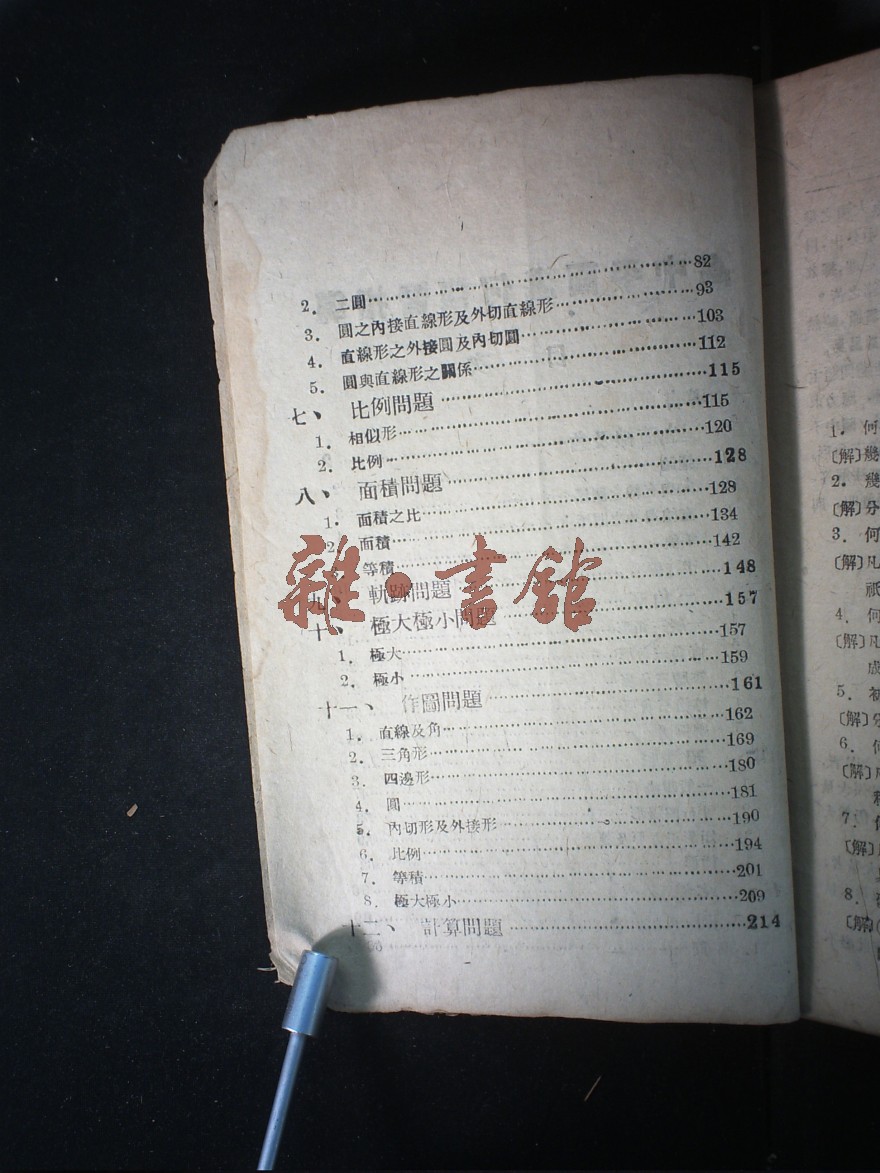 2. 二圓……82
3. 圓之內接直線形及外切直線形……93
4. 直線形之外接圓及內切圓……103
5. 圓與直線形之關係……112
七、 比例問題……115
1. 相似形……115
2. 比例……120
八、 面積問題……128
1. 面積之比……128
2. 面積……134
等積……142
九、 軌跡問題……148
十、 極大極小問題……157
1. 極大……157
2. 極小……159
十一、 作圖問題……161
1. 直線及角……162
2. 三角形……169
3. 四邊形……180
4. 圓……181
5. 內切形及外接形……190
6. 比例……194
7. 等積……201
8. 極大極小……209
十二、 計算問題……214
雜·書館
1. 何
〔解〕幾
2. 幾
〔解〕分
3. 何
〔解〕凡
4. 何
〔解〕凡
成
5.
〔解〕
6. 何
〔解〕
7.
〔解〕
8.
〔解〕